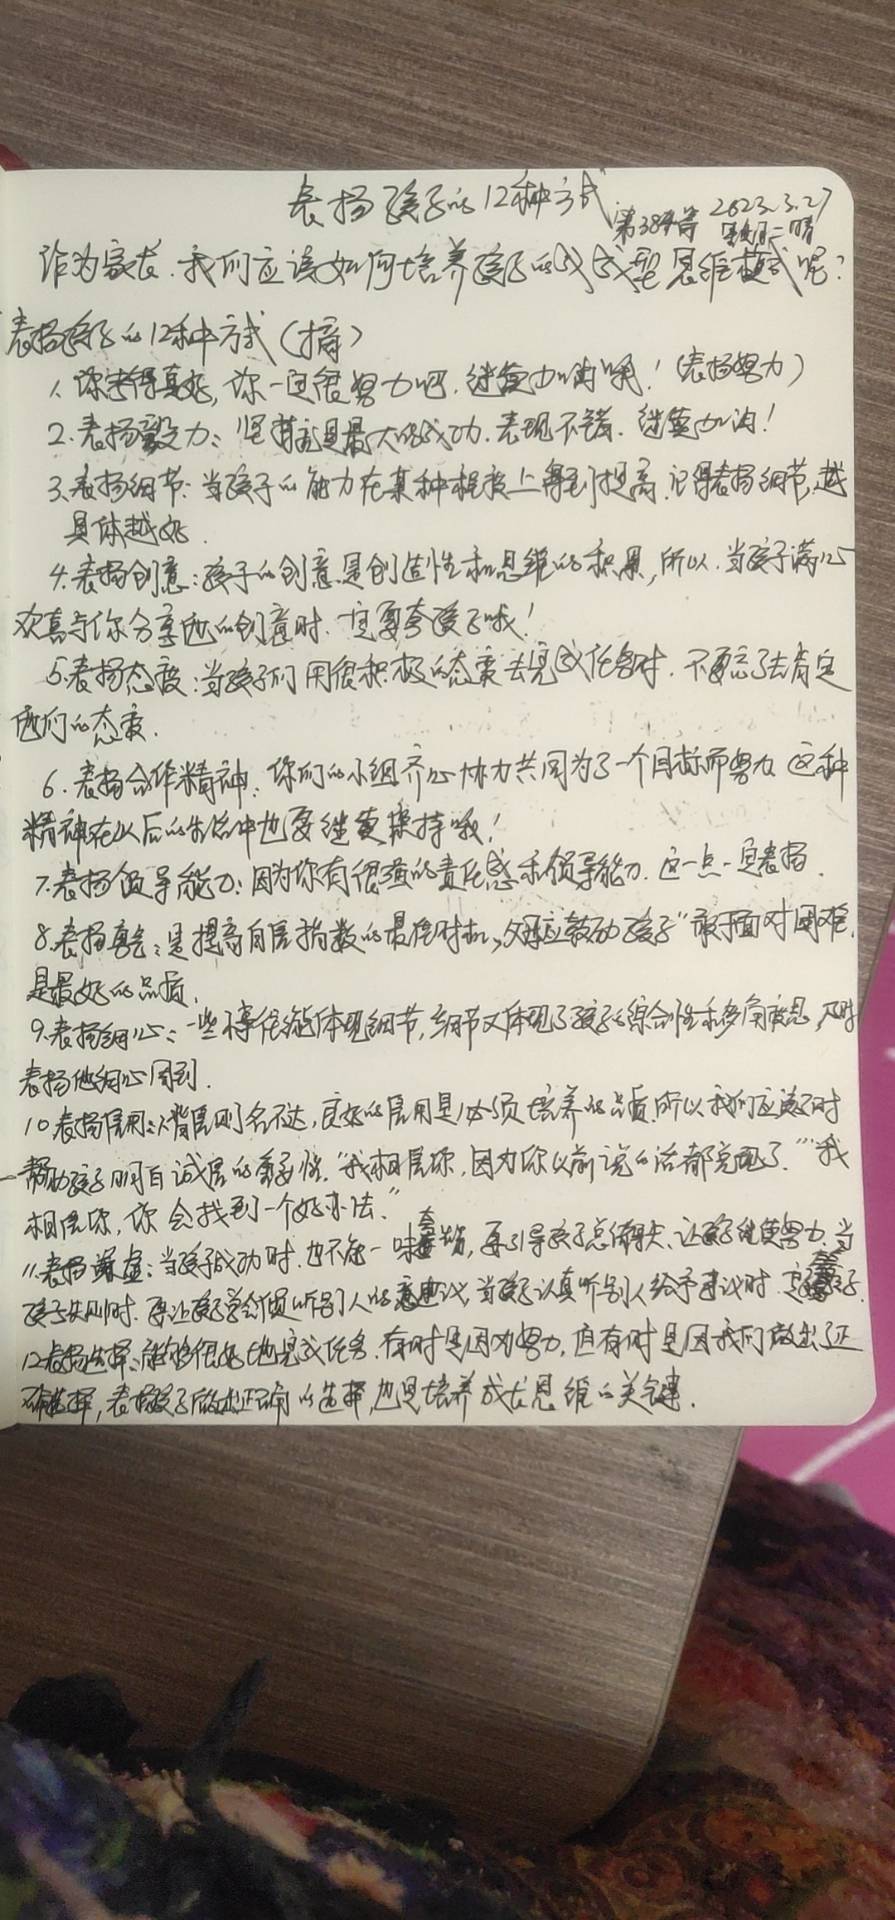 表扬孩子的12种方式
第384篇 2023.3.27
星期一晴
作为家长,我们应该如何培养孩子的成长型思维模式呢?
表扬孩子的12种方式(摘)
1、你考得真好,你一定很努力吧,继续加油哦!(表扬努力)
2、表扬毅力:坚持就是最大的成功,表现不错,继续加油!
3、表扬细节:当孩子的能力在某种程度上得到提高,记得表扬细节,越
具体越好.
4、表扬创意:孩子的创意是创造性和思维的积累,所以,当孩子满心
欢喜与你分享他的创意时,一定要夸孩子哦!
5、表扬态度:当孩子们用很积极的态度去完成任务时,不要忘了去肯定
他们的态度.
6、表扬合作精神:你们的小组齐心协力共同为了一个目标而努力,这种
精神在以后的生活中也要继续保持哦!
7、表扬领导能力:因为你有很强的责任感和领导能力,这一点一定表扬.
8、表扬勇气:是提高自信指数的最佳时机,父母应鼓励孩子“敢于面对困难,
是最好的品质.
9、表扬细心:一些小事往往能体现细节,细节又体现了孩子的综合性和多角度思,及时
表扬他细心周到.
10、表扬信用:人背信则名不达,良好的信用是必须培养的品质.所以我们应该及时
帮助孩子明白诚信的重要性.“我相信你,因为你以前说的话都兑现了.”“我
相信你,你会找到一个好办法.”
11、表扬谦虚:当孩子成功时,也不能一味夸奖,要引导孩子总结得失,让孩子继续努力,当
孩子失败时,要让孩子学会倾听别人的建议,当孩子认真听别人给予建议时,夸孩子.
12、表扬选择:能够很好地完成任务,有时是因为努力,但有时是因我们做出了正
确选择,表扬孩子做出正确的选择,也是培养成长思维的关键.